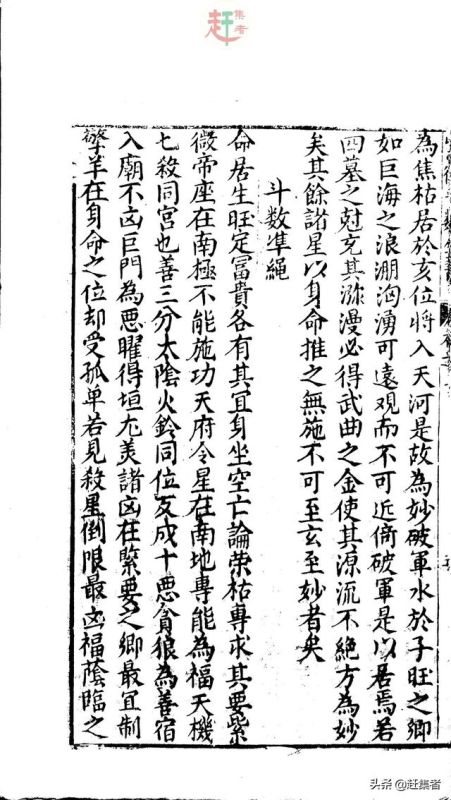 赶集者
為焦枯居於亥位將入天河是故為妙破軍水於子旺之鄉
如巨海之浪淜洶湧可遠觀而不可近倚破軍是以居焉若
四墓之尅充其瀰漫必得武曲之金使其源流不絕方為妙
矣其餘諸星以身命推之無施不可至玄至妙者矣
斗数準繩
命居生旺定冨貴各有其冝身坐空亡論荣枯專求其要紫
微帝座在南極不能施功天府令星在南地專能為福天機
七殺同宮也善三分太陰火鈴同位反成十悪貪狼為善宿
入廟不凶巨門為悪曜得垣尤美諸凶在緊要之鄉最冝制
擎羊在身命之位却受孤单若見殺星倒限最凶福䕃臨之
头条 @赶集者